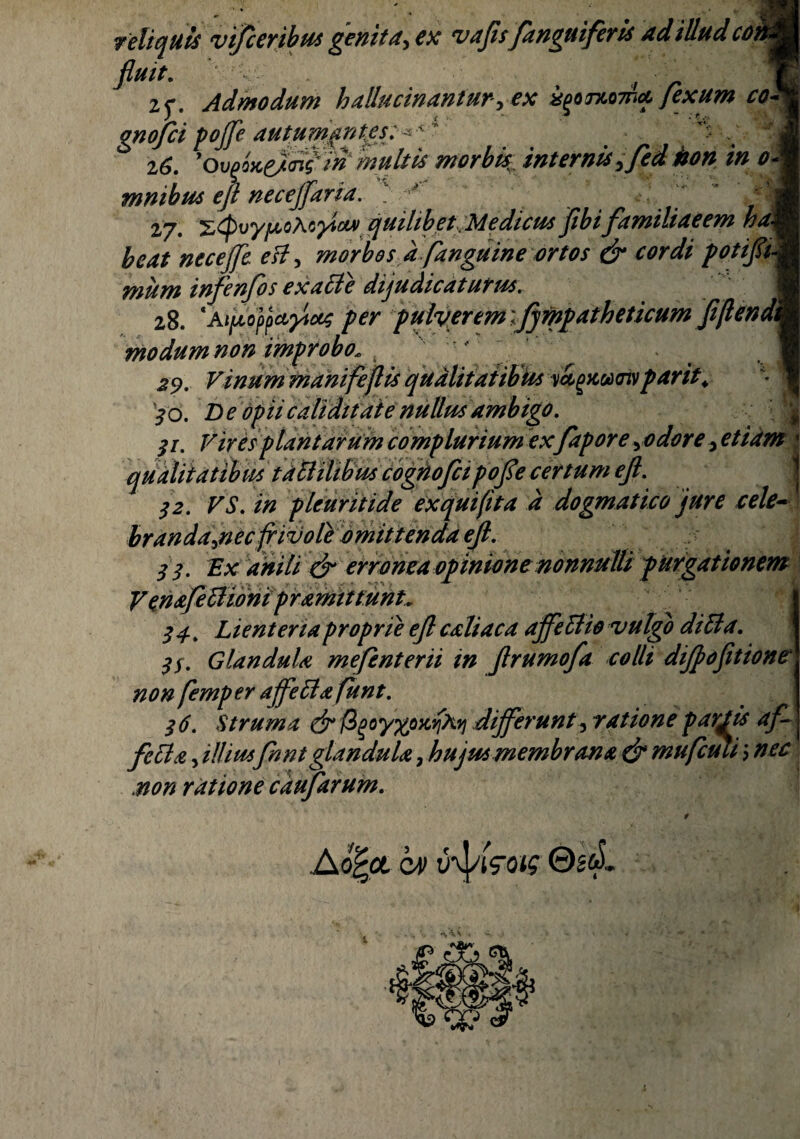 reliquis visceribus genita, ex vasis sanguiferis ad illud con-
fluit.
25. Admodum hallucinantur, ex ὀροσκοπίᾳ sexum co-
gnosci posse autumantes.
26. Ὀυρόκρισις in multis morbis internis, sed non in o-
mnibus est necessaria.
27. Σφυγμολογίαν quilibet Medicus sibi familiaeem ha-
beat necesse est, morbos à sanguine ortos & cordi potissi-
mùm infensos exactè dijudicaturus.
28. Ἁιμοῤῥαγίας per pulverem sympatheticum sistendi
modum non improbo.
29. Vinum manifestis qualitatibus νάρκωσιν parit.
30. De opii caliditate nullus ambigo.
31. Vires plantarum complurium ex sapore, odore, etiam
qualitatibus tactilibus cognosci posse certum est.
32. VS. in pleuritide exquisita à dogmatico jure cele-
branda, nec frivolè omittenda est.
33. Ex anili & erronea opinione nonnulli purgationem
Venæsectioni præmittunt.
34. Lienteria propriè est cæliaca affectio vulgò dicta.
35. Glandulæ mesenterii in strumosa colli dispositione
non semper affectæ sunt.
36. Struma & βρογχοκήλη differunt, ratione partis af-
fectæ, illius snnt glandulæ, hujus membranæ & musculi; nec
non ratione causarum.
Δόξα ἐν ὑψίστοις Θεῷ.